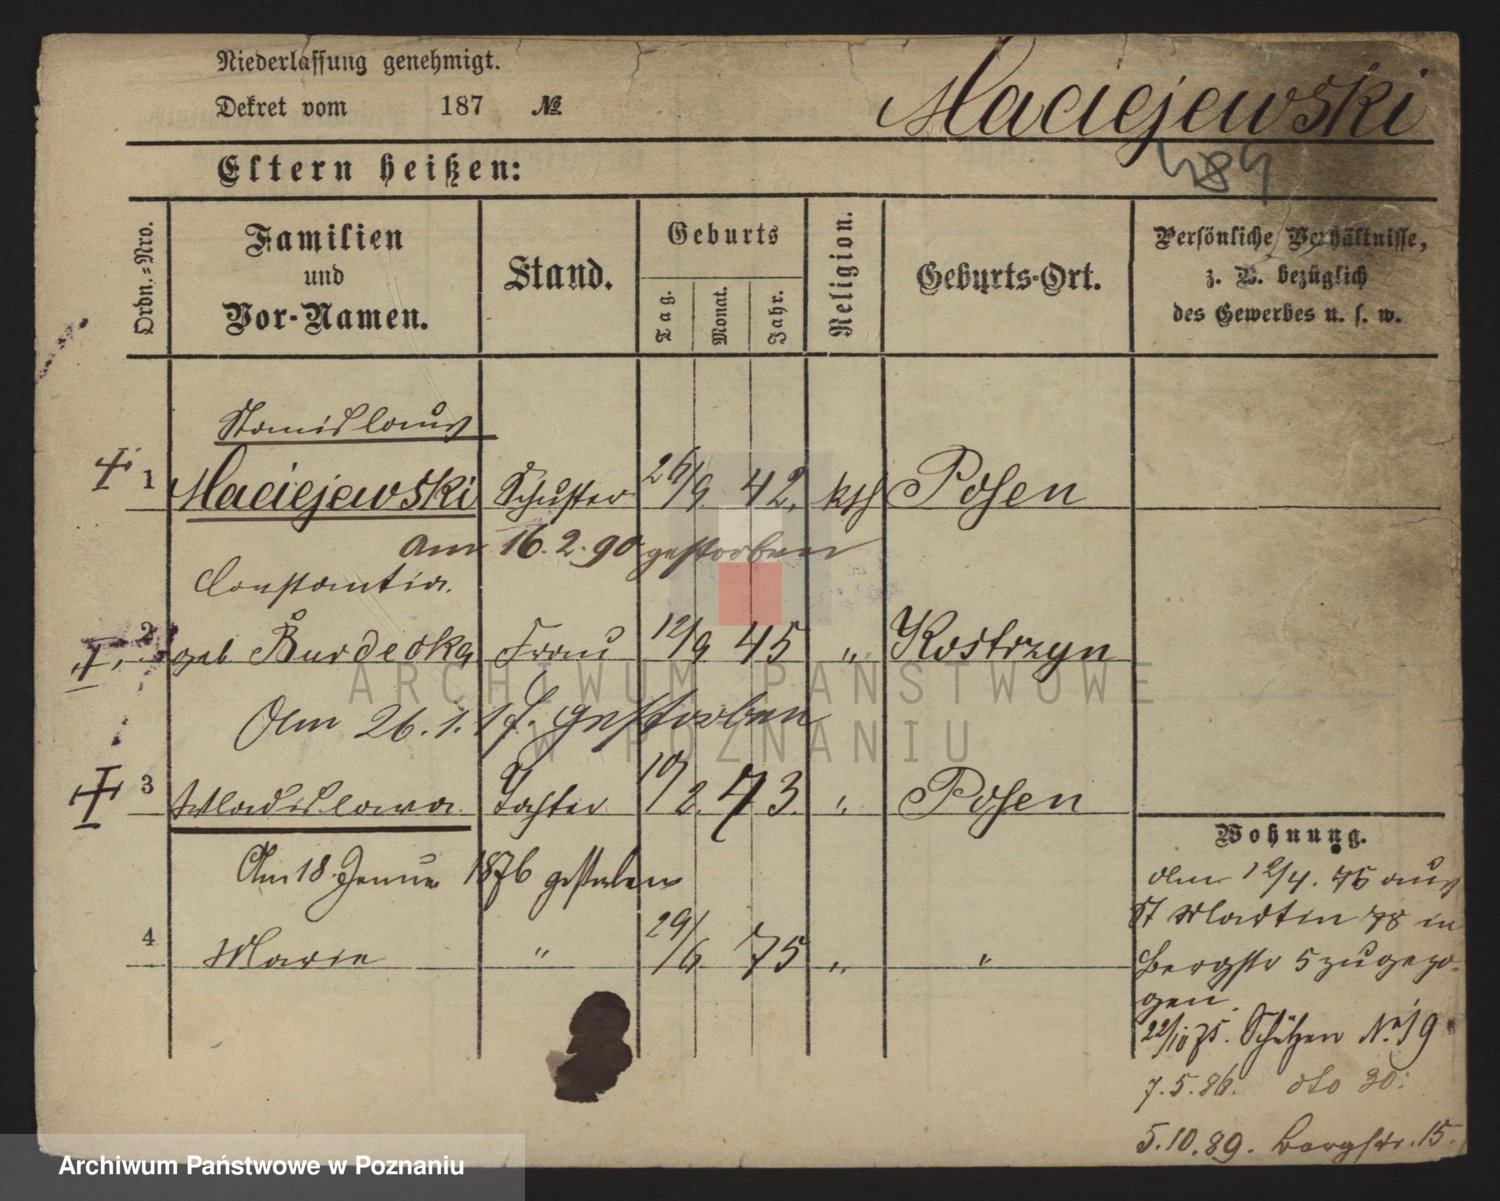 Niederlassung genehmigt.
Dekret vom 187 №
Maciejewski
489
Eltern heißen:
Ordn.-Nro.
Familien
und
Vor-Namen.
Stand.
Geburts
Tag.
Monat.
Jahr.
Religion.
Geburts-Ort.
Persönliche Verhältnisse,
z. B. bezüglich
des Gewerbes u. s. w.
Stanislaus
1 Maciejewski Schuster 26/9. 42. kth Posen
am 16.2.90 gestorben
Constantia
2 geb Burdecka Frau 12/9 45 " Kostrzyn
Am 26.1.17. gestorben
3 Wladislawa Tochter 10/2. 73. " Posen
Am 18 Januar 1876 gestorben
4 Marie " 29/6. 75 " "
Wohnung.
Am 12/4. 75 aus
St Martin 78 in
Bergstr 5 zugezo-
gen.
22/10 75. Schützen No 19
7.5.86. dto 30.
5.10.89. Bergstr. 15.
ARCHIWUM PAŃSTWOWE
W POZNANIU
Archiwum Państwowe w Poznaniu